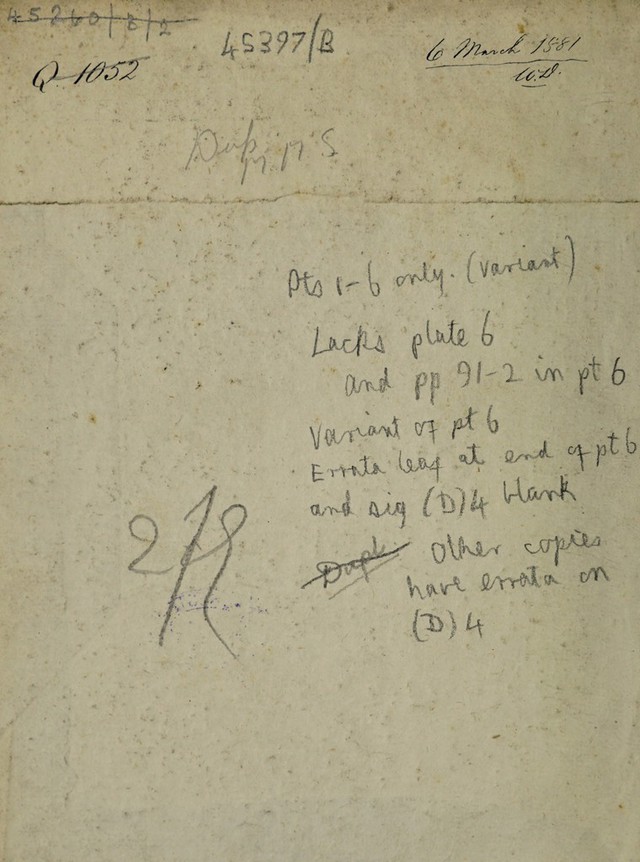 45260/B/2
45397/B
6 March 1881
W.D.
Q-1052
Dup
Pts 1-6 only. (Variant)
Lacks plate 6
and pp 91-2 in pt 6
Variant of pt 6
Errata leaf at end of pt 6
and sig (D)4 blank
Dupl Other copies
have errata on
(D)4